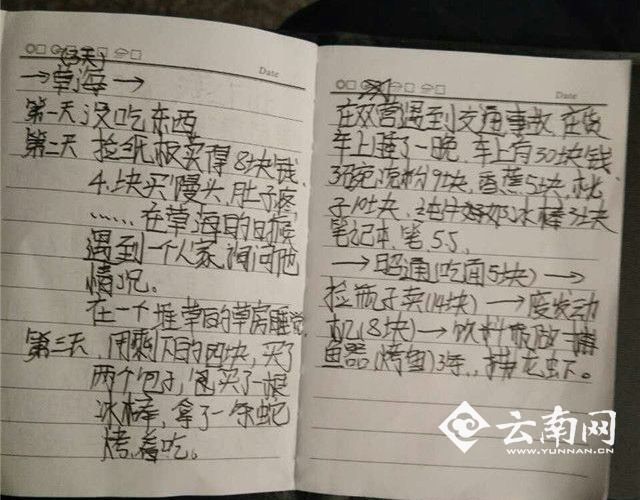 Date
→草海→
第一天没吃东西
第二天 捡纸板卖得8块钱,
4块买馒头,肚子疼,
……在草海的时候
遇到一个人家,询问他
情况。
在一个堆草的草房睡觉
第三天,用剩下的四块,买了
两个包子,买了一根
冰棒,拿了一条蛇
烤着吃。
Date
在双营遇到交通事故,在货
车上睡了一晚,车上有30块钱,
3碗凉粉9块,香蕉5块,桃
子10块,冰棒3块
笔记本,笔,5.5,
→昭通(吃面5块)→
捡瓶子卖(14块)→废发动
机(8块)→饮料瓶做捕
鱼器(烤鱼)3年,龙虾。
云南网
WWW.YUNNAN.CN